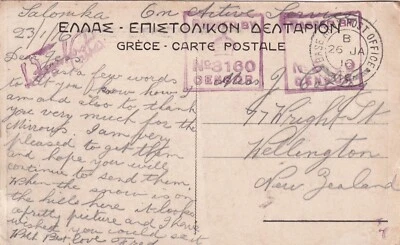 Salonika On Active Service
23/1/16
ΕΛΛΑΣ - ΕΠΙΣΤΟΛΙΚΟΝ ΔΕΛΤΑΡΙΟΝ
GRÈCE - CARTE POSTALE
BY
No 3160
CENSOR
No
CENSOR
BASE ARMY POST OFFICE
B
25 JA
16
Dear
Just a few words
to let you know how I
am and also to thank
you very much for the
Mirrors. I am very
pleased to get them
and hope you will
continue to send them.
When the snow is on
the hills here it looks
a pretty picture and I have
wished you could see it
With Best love
47 Wright St
Wellington
New Zealand